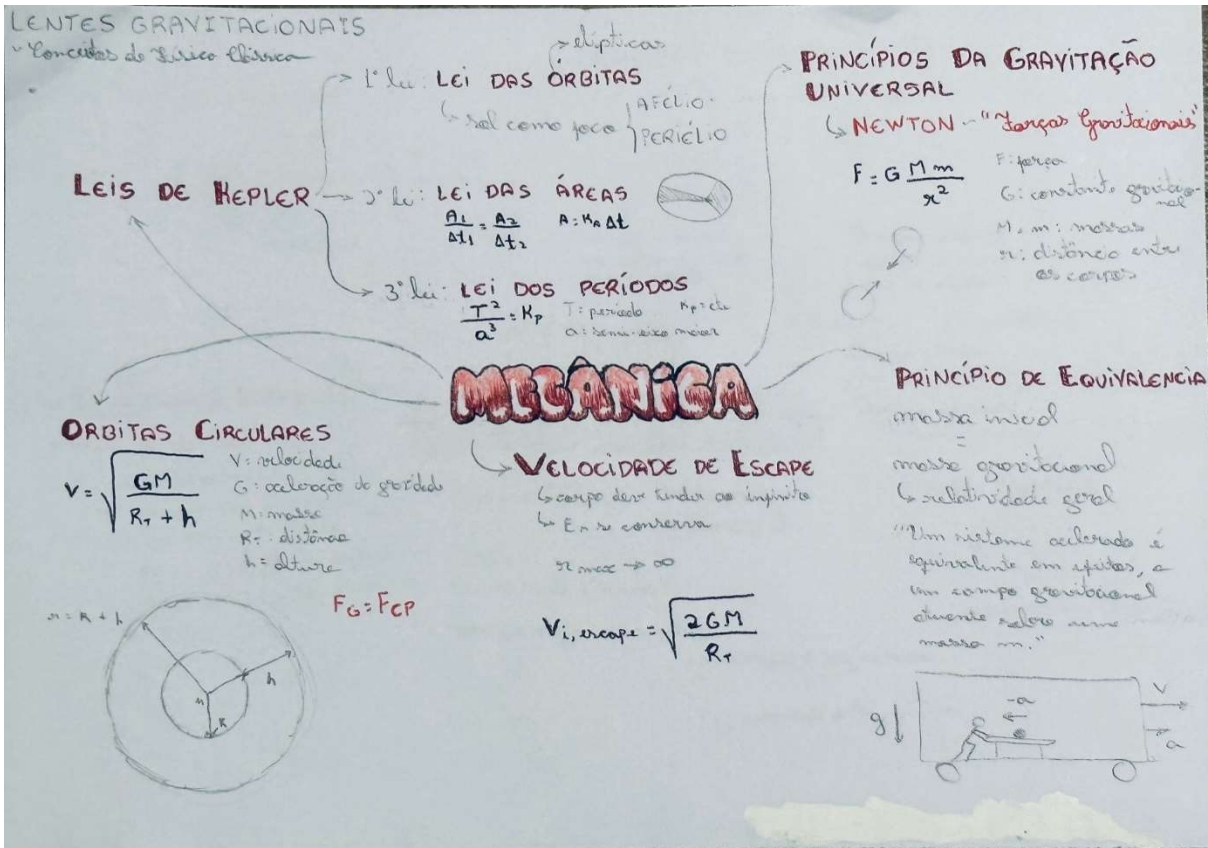 LENTES GRAVITACIONAIS
Conceitos de Física Clássica
LEIS DE KEPLER
1ª lei: LEI DAS ÓRBITAS
elípticas
sol como foco
AFÉLIO
PERIÉLIO
2ª lei: LEI DAS ÁREAS
A1/Δt1 = A2/Δt2 A = KA Δt
3ª lei: LEI DOS PERÍODOS
T²/a³ = Kp
T: período Kp = cte
a: semi-eixo maior
PRINCÍPIOS DA GRAVITAÇÃO
UNIVERSAL
NEWTON - "Forças Gravitacionais"
F = G M m / r²
F: força
G: constante gravitacio-
nal
M, m: massas
r: distância entre
os corpos
MECÂNICA
ORBITAS CIRCULARES
V = √(GM / (RT + h))
V: velocidade
G: aceleração da gravidade
M: massa
RT: distância
h = altura
FG = FCP
r = R + h
h
R
VELOCIDADE DE ESCAPE
corpo deve tender ao infinito
se conserva
r max → ∞
Vi, escape = √(2GM / RT)
PRINCÍPIO DE EQUIVALENCIA
massa
=
massa gravitacional
relatividade geral
"Um sistema acelerado é
equivalente em efeitos, a
um campo gravitacional
atuante sobre uma
massa m."
g
-a
V
a